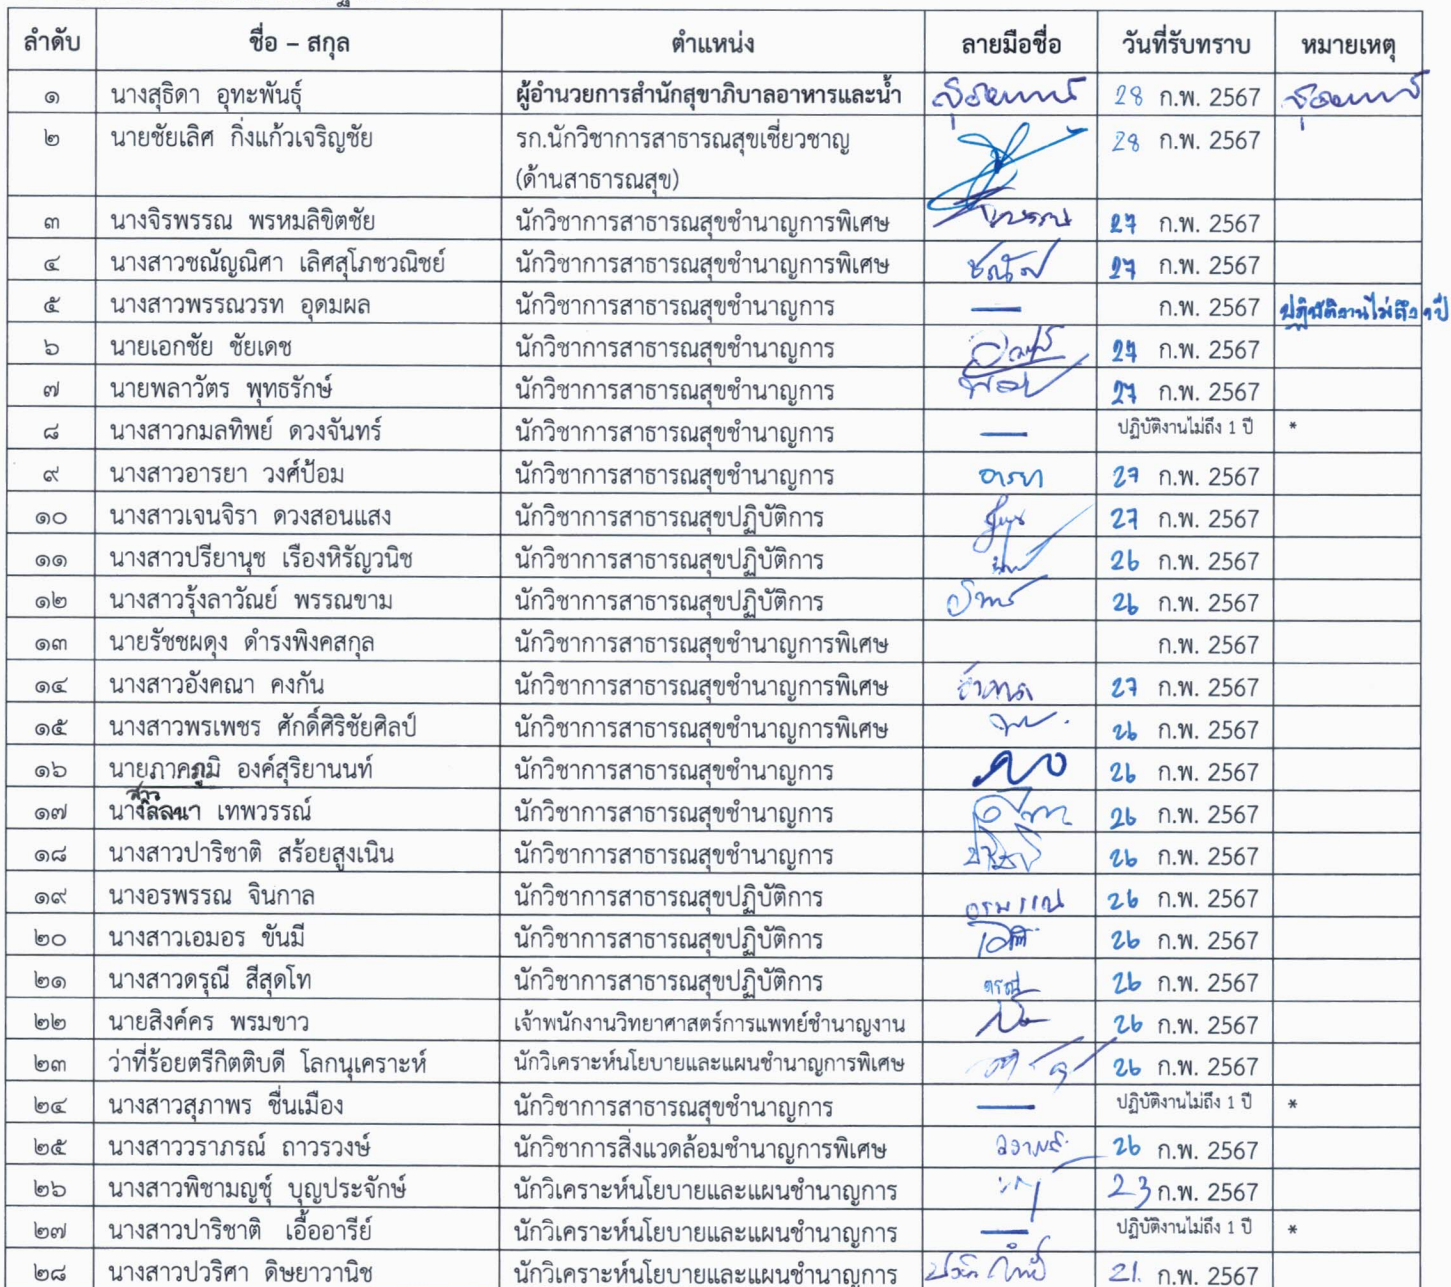 ลำดับ ชื่อ – สกุล ตำแหน่ง ลายมือชื่อ วันที่รับทราบ หมายเหตุ
๑ นางสุธิดา อุทะพันธุ์ ผู้อำนวยการสำนักสุขาภิบาลอาหารและน้ำ 28 ก.พ. 2567
๒ นายชัยเลิศ กิ่งแก้วเจริญชัย รก.นักวิชาการสาธารณสุขเชี่ยวชาญ 28 ก.พ. 2567
(ด้านสาธารณสุข)
๓ นางจิรพรรณ พรหมลิขิตชัย นักวิชาการสาธารณสุขชำนาญการพิเศษ 27 ก.พ. 2567
๔ นางสาวชณัญณิศา เลิศสุโภชวณิชย์ นักวิชาการสาธารณสุขชำนาญการพิเศษ 27 ก.พ. 2567
๕ นางสาวพรรณวรท อุดมผล นักวิชาการสาธารณสุขชำนาญการ — ก.พ. 2567 ปฏิบัติงานไม่ถึง ๑ ปี
๖ นายเอกชัย ชัยเดช นักวิชาการสาธารณสุขชำนาญการ 27 ก.พ. 2567
๗ นายพลาวัตร พุทธรักษ์ นักวิชาการสาธารณสุขชำนาญการ 27 ก.พ. 2567
๘ นางสาวกมลทิพย์ ดวงจันทร์ นักวิชาการสาธารณสุขชำนาญการ — ปฏิบัติงานไม่ถึง 1 ปี *
๙ นางสาวอารยา วงศ์ป้อม นักวิชาการสาธารณสุขชำนาญการ อารยา 27 ก.พ. 2567
๑๐ นางสาวเจนจิรา ดวงสอนแสง นักวิชาการสาธารณสุขปฏิบัติการ 27 ก.พ. 2567
๑๑ นางสาวปรียานุช เรืองหิรัญวนิช นักวิชาการสาธารณสุขปฏิบัติการ 26 ก.พ. 2567
๑๒ นางสาวรุ้งลาวัณย์ พรรณขาม นักวิชาการสาธารณสุขปฏิบัติการ 26 ก.พ. 2567
๑๓ นายรัชชผดุง ดำรงพิงคสกุล นักวิชาการสาธารณสุขชำนาญการพิเศษ ก.พ. 2567
๑๔ นางสาวอังคณา คงกัน นักวิชาการสาธารณสุขชำนาญการพิเศษ 27 ก.พ. 2567
๑๕ นางสาวพรเพชร ศักดิ์ศิริชัยศิลป์ นักวิชาการสาธารณสุขชำนาญการพิเศษ 26 ก.พ. 2567
๑๖ นายภาคภูมิ องค์สุริยานนท์ นักวิชาการสาธารณสุขชำนาญการ 26 ก.พ. 2567
๑๗ นางสาวลลนา เทพวรรณ์ นักวิชาการสาธารณสุขชำนาญการ 26 ก.พ. 2567
๑๘ นางสาวปาริชาติ สร้อยสูงเนิน นักวิชาการสาธารณสุขชำนาญการ 26 ก.พ. 2567
๑๙ นางอรพรรณ จินกาล นักวิชาการสาธารณสุขปฏิบัติการ อรพรรณ 26 ก.พ. 2567
๒๐ นางสาวเอมอร ขันมี นักวิชาการสาธารณสุขปฏิบัติการ 26 ก.พ. 2567
๒๑ นางสาวดรุณี สีสุดโท นักวิชาการสาธารณสุขปฏิบัติการ ดรุณี 26 ก.พ. 2567
๒๒ นายสิงค์คร พรมขาว เจ้าพนักงานวิทยาศาสตร์การแพทย์ชำนาญงาน 26 ก.พ. 2567
๒๓ ว่าที่ร้อยตรีกิตติบดี โลกนุเคราะห์ นักวิเคราะห์นโยบายและแผนชำนาญการพิเศษ 26 ก.พ. 2567
๒๔ นางสาวสุภาพร ชื่นเมือง นักวิชาการสาธารณสุขชำนาญการ — ปฏิบัติงานไม่ถึง 1 ปี *
๒๕ นางสาววราภรณ์ ถาวรวงษ์ นักวิชาการสิ่งแวดล้อมชำนาญการพิเศษ 26 ก.พ. 2567
๒๖ นางสาวพิชามญชุ์ บุญประจักษ์ นักวิเคราะห์นโยบายและแผนชำนาญการ 23 ก.พ. 2567
๒๗ นางสาวปาริชาติ เอื้ออารีย์ นักวิเคราะห์นโยบายและแผนชำนาญการ — ปฏิบัติงานไม่ถึง 1 ปี *
๒๘ นางสาวปวริศา ดิษยาวานิช นักวิเคราะห์นโยบายและแผนชำนาญการ 21. ก.พ. 2567